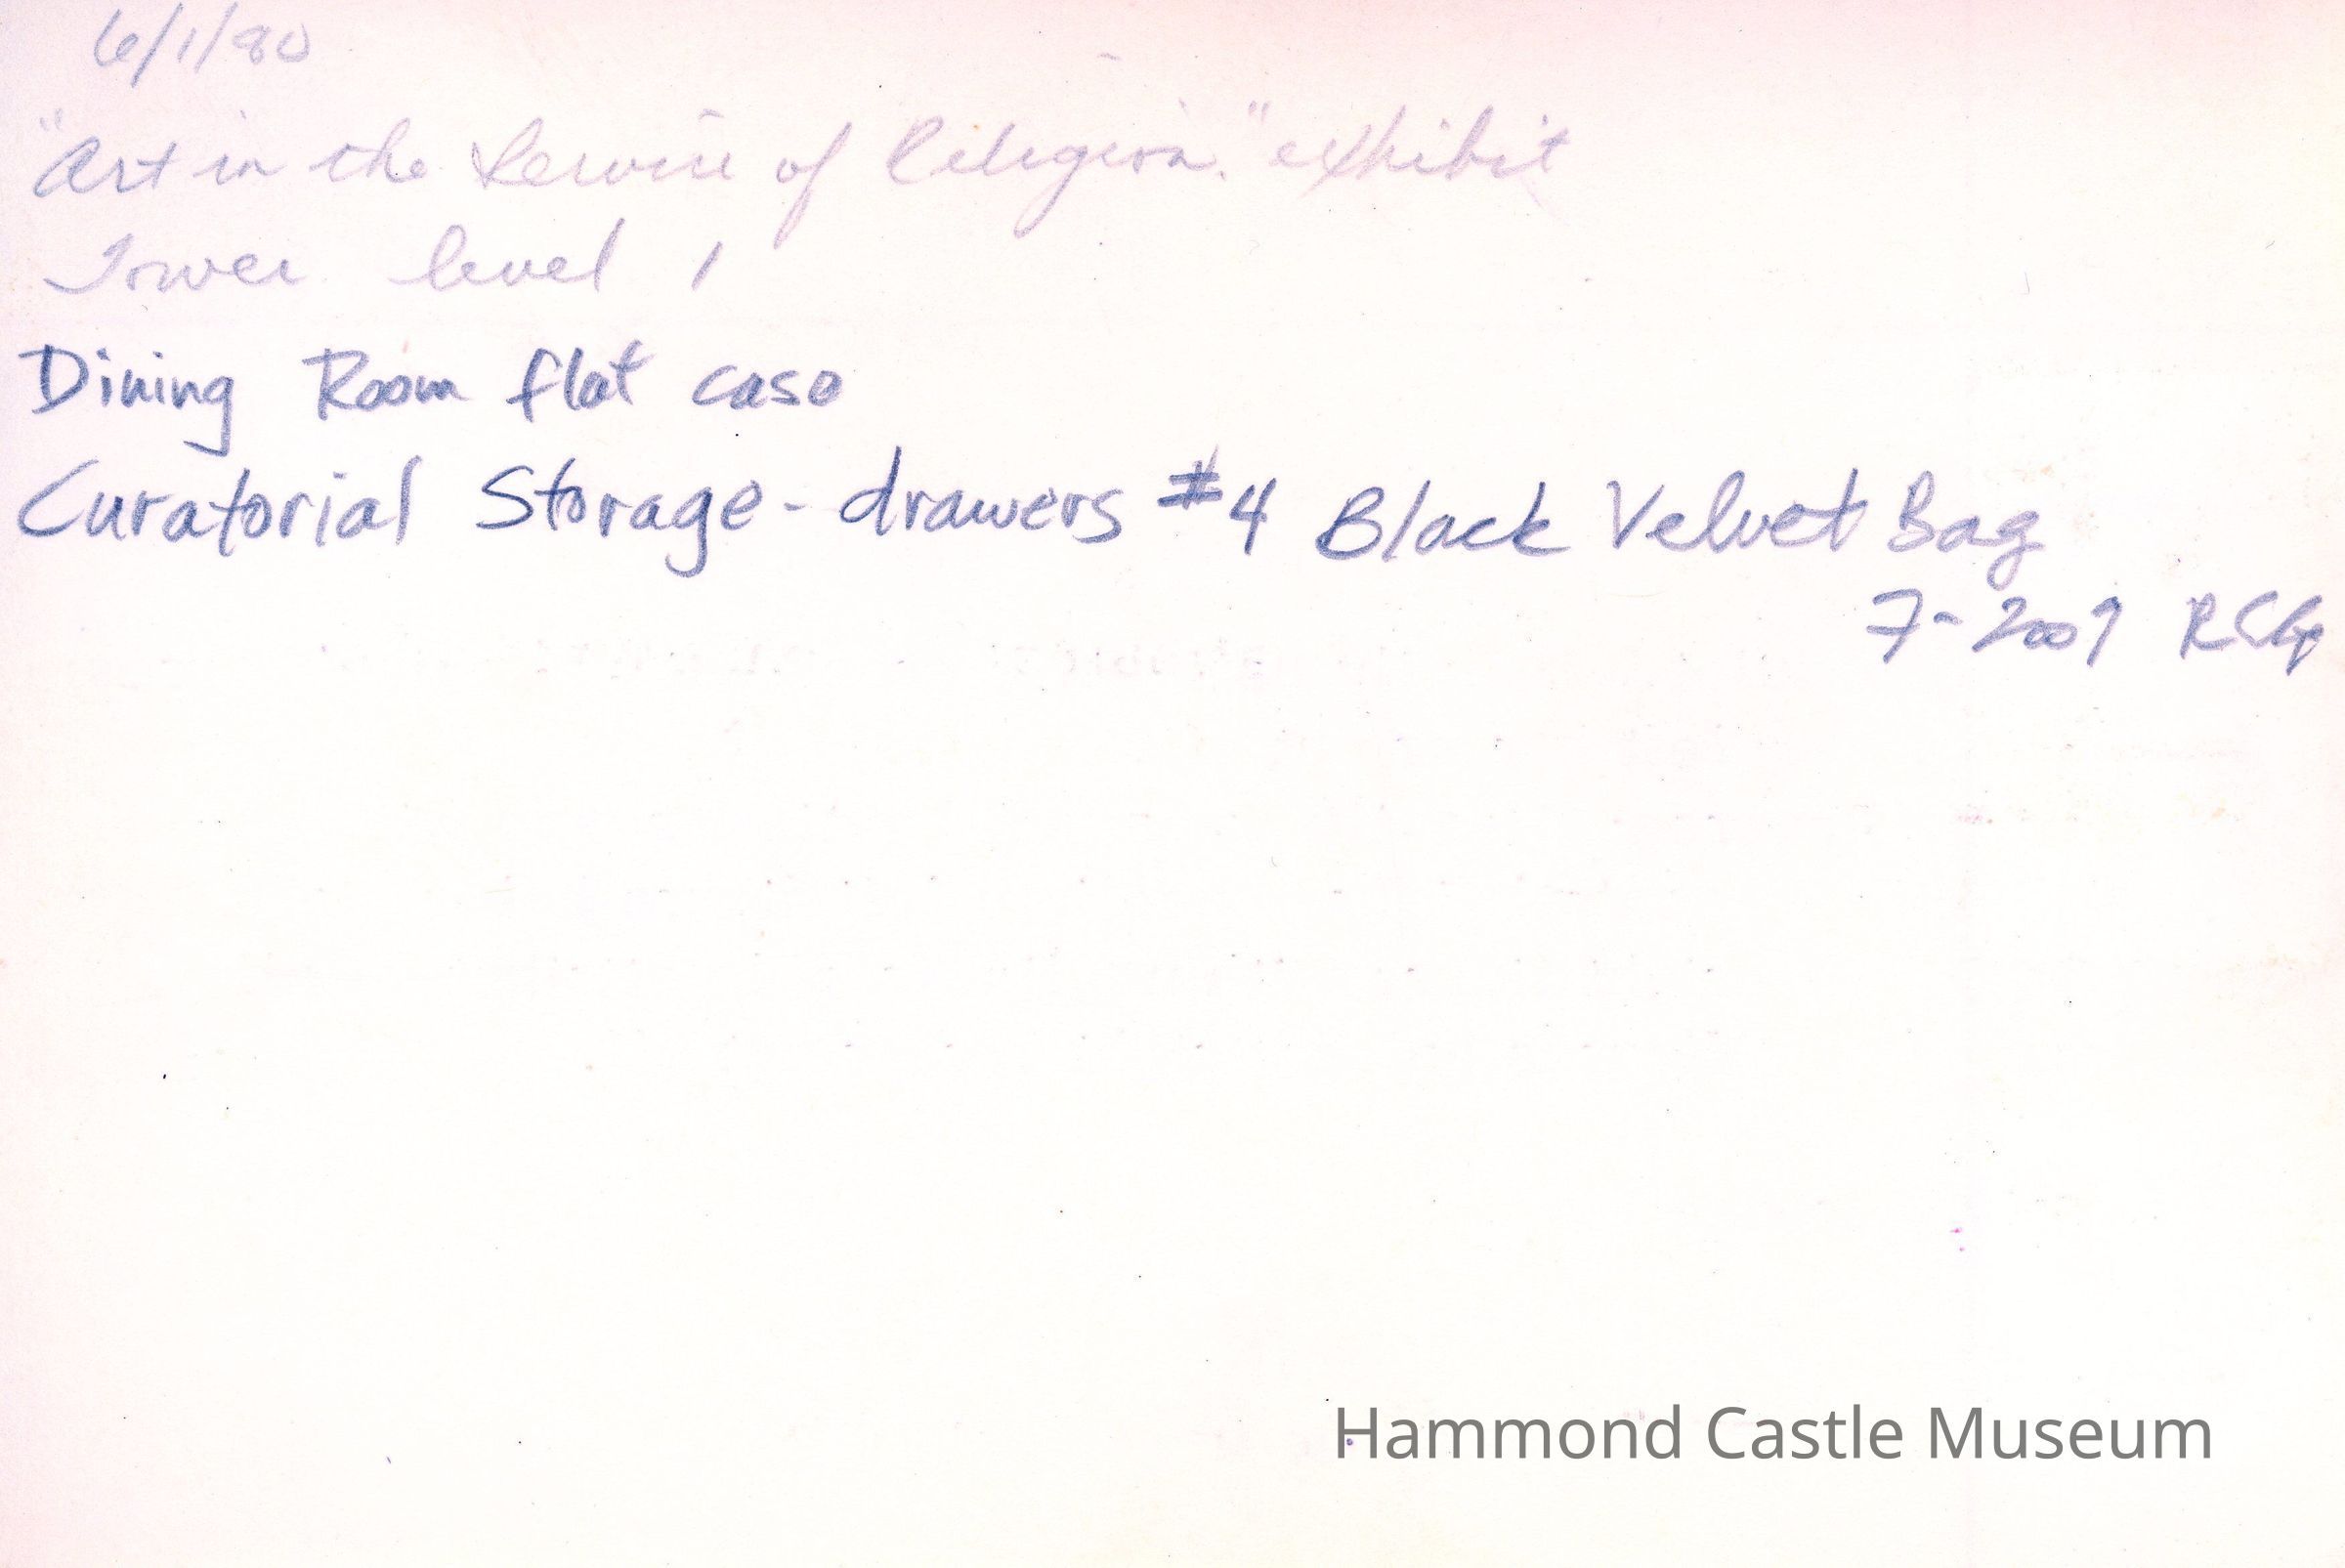 6/1/80
"Art in the Service of Religion." exhibit
Tower level 1
Dining Room flat case
Curatorial Storage - drawers #4 Black Velvet Bag
7-2009
Hammond Castle Museum